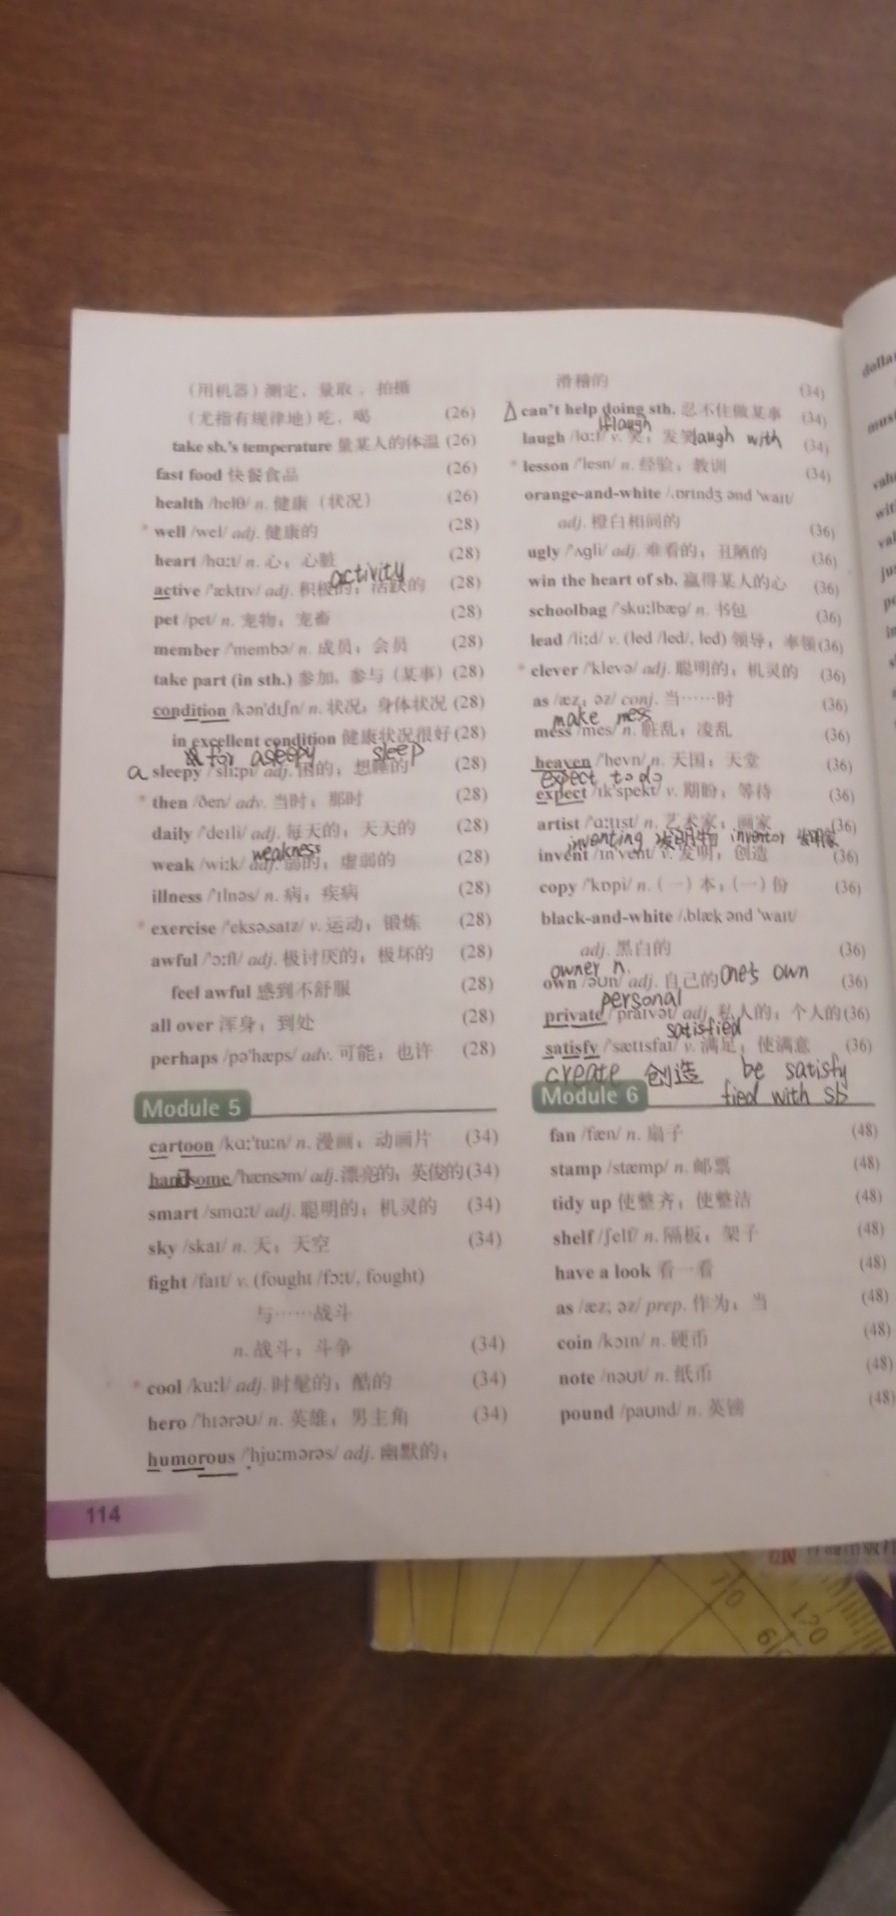 （用机器）测定，量取，拍摄
（尤指有规律地）吃，喝 (26)
take sb.'s temperature 量某人的体温 (26)
fast food 快餐食品 (26)
health /helθ/ n. 健康（状况） (26)
* well /wel/ adj. 健康的 (28)
heart /hɑːt/ n. 心；心脏 (28)
activity
active /'æktɪv/ adj. 积极的；活跃的 (28)
pet /pet/ n. 宠物；宠畜 (28)
member /'membə/ n. 成员；会员 (28)
take part (in sth.) 参加，参与（某事） (28)
condition /kən'dɪʃn/ n. 状况；身体状况 (28)
in excellent condition 健康状况很好 (28)
for asleepy sleep
a sleepy /'sliːpi/ adj. 困的；想睡的 (28)
* then /ðen/ adv. 当时；那时 (28)
daily /'deɪli/ adj. 每天的；天天的 (28)
weakness
weak /wiːk/ adj. 弱的；虚弱的 (28)
illness /'ɪlnəs/ n. 病；疾病 (28)
* exercise /'eksəsaɪz/ v. 运动；锻炼 (28)
awful /'ɔːfl/ adj. 极讨厌的；极坏的 (28)
feel awful 感到不舒服 (28)
all over 浑身；到处 (28)
perhaps /pə'hæps/ adv. 可能；也许 (28)
Module 5
cartoon /kɑː'tuːn/ n. 漫画；动画片 (34)
handsome /'hænsəm/ adj. 漂亮的；英俊的 (34)
smart /smɑːt/ adj. 聪明的；机灵的 (34)
sky /skaɪ/ n. 天；天空 (34)
fight /faɪt/ v. (fought /fɔːt/, fought)
与……战斗
n. 战斗；斗争 (34)
* cool /kuːl/ adj. 时髦的；酷的 (34)
hero /'hɪərəʊ/ n. 英雄；男主角 (34)
humorous /'hjuːmərəs/ adj. 幽默的；
114
滑稽的 (34)
△ can't help doing sth. 忍不住做某事 (34)
laugh laugh with
laugh /lɑːf/ v. 笑；发笑 (34)
* lesson /'lesn/ n. 经验；教训 (34)
orange-and-white /ˌɒrɪndʒ ənd 'waɪt/
adj. 橙白相间的 (36)
ugly /'ʌɡli/ adj. 难看的；丑陋的 (36)
win the heart of sb. 赢得某人的心 (36)
schoolbag /'skuːlbæɡ/ n. 书包 (36)
lead /liːd/ v. (led /led/, led) 领导；率领 (36)
* clever /'klevə/ adj. 聪明的；机灵的 (36)
as /æz; əz/ conj. 当……时 (36)
make mess
mess /mes/ n. 脏乱；凌乱 (36)
heaven /'hevn/ n. 天国；天堂 (36)
expect to do
expect /ɪk'spekt/ v. 期盼；等待 (36)
artist /'ɑːtɪst/ n. 艺术家；画家 (36)
inventing 发明物 inventor 发明家
invent /ɪn'vent/ v. 发明；创造 (36)
copy /'kɒpi/ n. （一）本；（一）份 (36)
black-and-white /ˌblæk ənd 'waɪt/
adj. 黑白的 (36)
owner n. one's own
own /əʊn/ adj. 自己的 (36)
personal
private /'praɪvət/ adj. 私人的；个人的 (36)
satisfied
satisfy /'sætɪsfaɪ/ v. 满足；使满意 (36)
create 创造 be satisfy
fied with sb
Module 6
fan /fæn/ n. 扇子 (48)
stamp /stæmp/ n. 邮票 (48)
tidy up 使整齐；使整洁 (48)
shelf /ʃelf/ n. 隔板；架子 (48)
have a look 看一看 (48)
as /æz; əz/ prep. 作为；当 (48)
coin /kɔɪn/ n. 硬币 (48)
note /nəʊt/ n. 纸币 (48)
pound /paʊnd/ n. 英镑 (48)
120